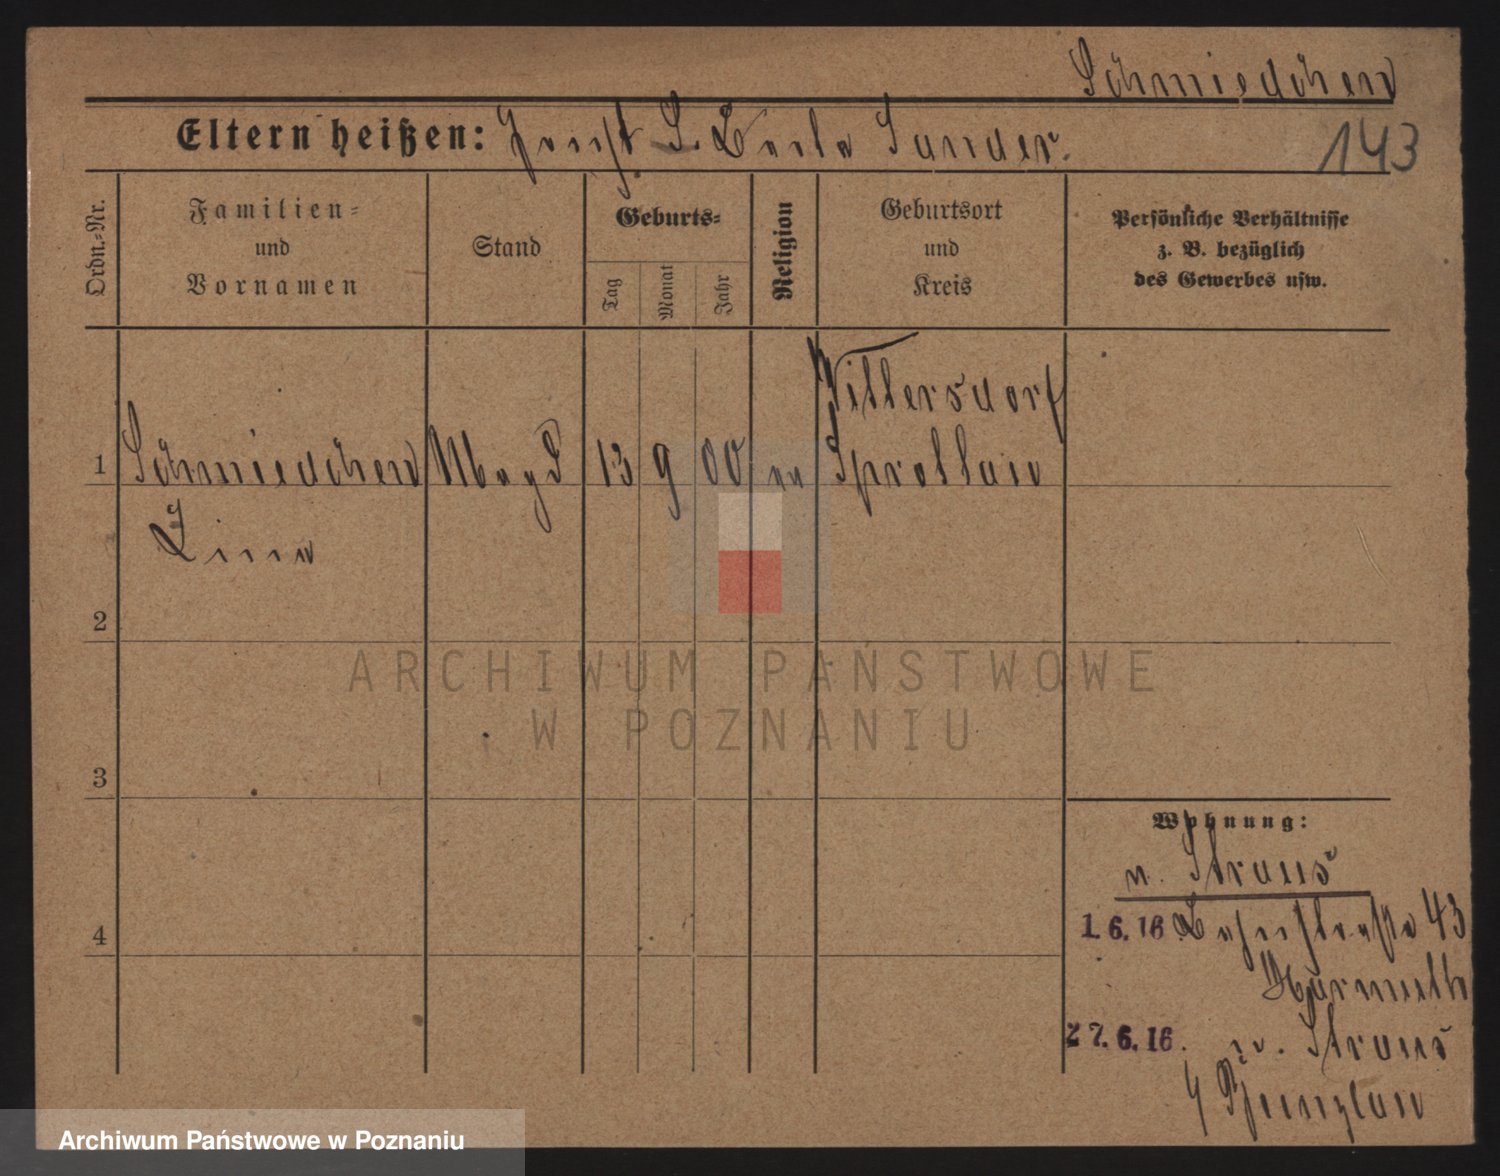 Schmiedchen
Eltern heißen: S. Sander.
143
Ordn.-Nr.
Familien-
und
Vornamen
Stand
Geburts-
Tag
Monat
Jahr
Religion
Geburtsort
und
Kreis
Persönliche Verhältnisse
z. B. bezüglich
des Gewerbes usw.
Wittersdorf
1 Schmiedchen Magd 13 9 00 ev Sprottau
Lina
2
ARCHIWUM PAŃSTWOWE
W POZNANIU
3
Wohnung:
n. Straus
4
1.6.16 43
27.6.16. Straus
Bunzlau
Archiwum Państwowe w Poznaniu